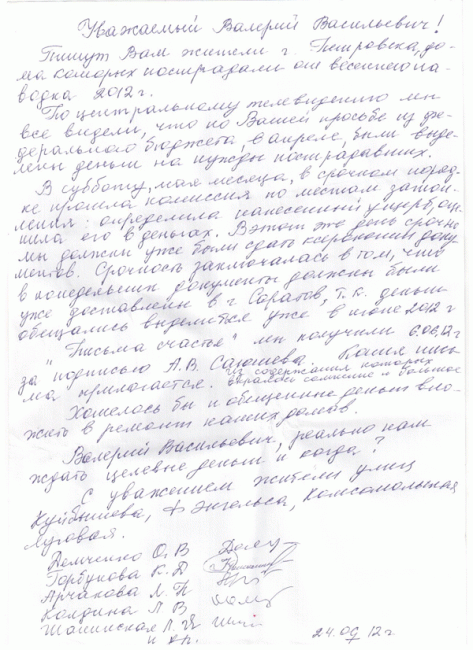 Уважаемый Валерий Васильевич!
Пишут Вам жители г. Петровска, до-
ма которых пострадали от весеннего па-
водка 2012 г.
По центральному телевидению мы
все видели, что по Вашей просьбе из фе-
дерального бюджета, в апреле, были выде-
лены деньги на нужды пострадавших.
В субботу, мая месяца, в срочном поряд-
ке прошла комиссия по местам затоп-
ления: определила нанесенный ущерб, оце-
нила его в деньгах. В этот же день срочно
мы должны уже были сдать ксерокопии доку-
ментов. Срочность заключалась в том, что
в понедельник документы должны были
уже доставлены в г Саратов, т.к. деньги
обещались выделится уже в июне 2012 г
"Письма счастья" мы получили 6.06.12 г
за подписью А.В.
ма прилагается. из содержания которых
Хотелось бы и обещанные деньги вло-
жить в ремонт наших домов.
Валерий Васильевич, реально нам
ждать целевые деньги и когда?
С уважением жители улиц
Куйбышева, Ф Энгельса, Комсомольская
Луговая.
Демченко О. В
Горбунова К. Д
Арчакова Л. П
Колдина Л В
Шатинская Л.
и др. 24.09 12 г.